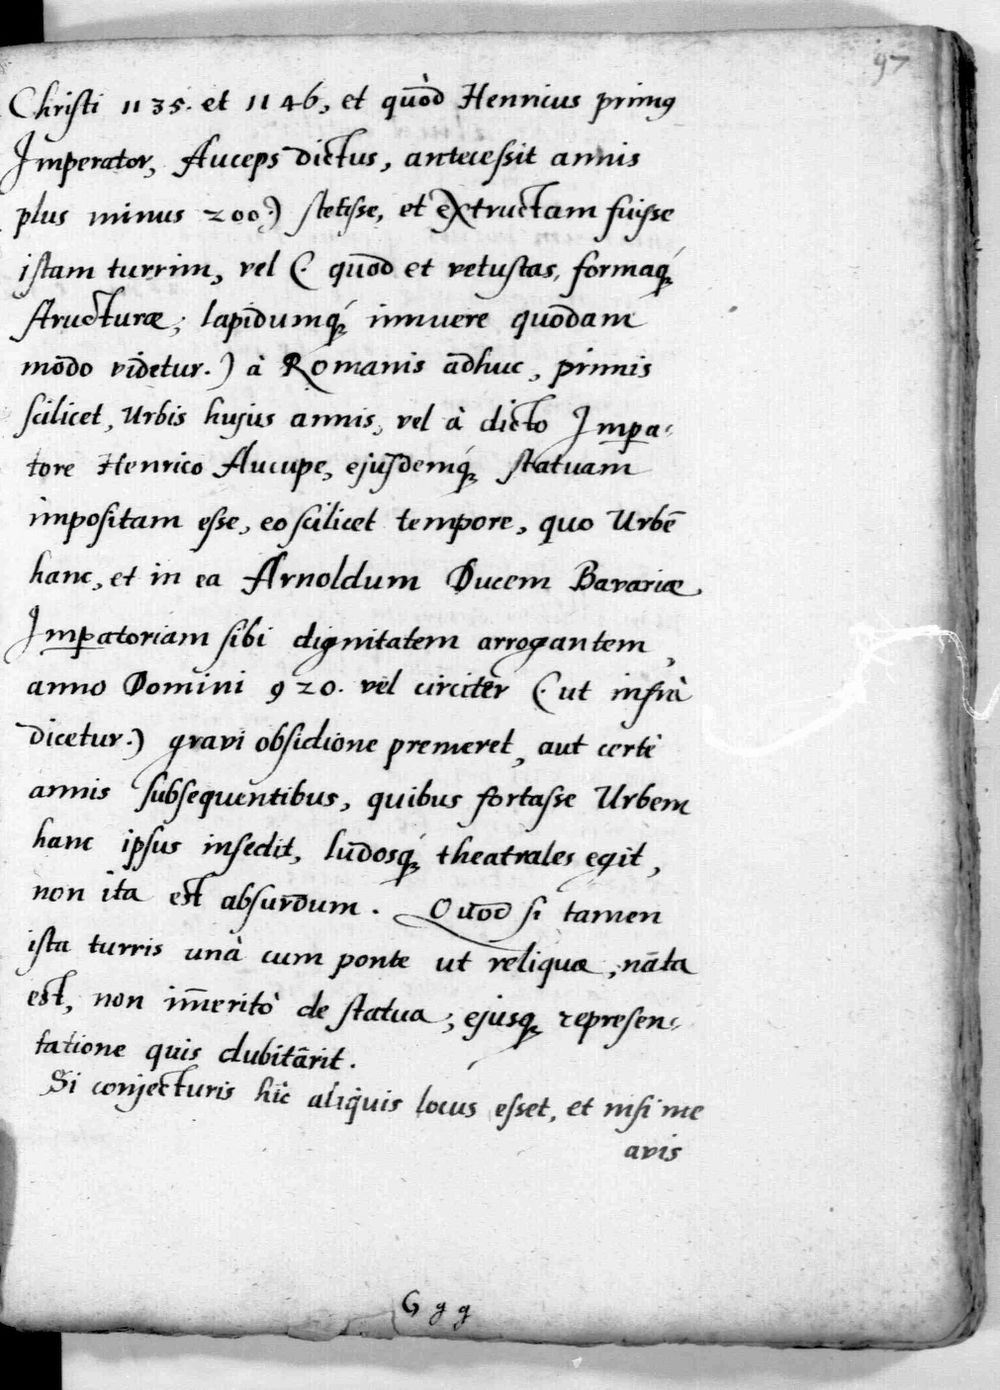 97
Christi 1135. et 1146, et quòd Henricus primꝰ
Imperator, Auceps dictus, antecessit annis
plus minus 200.) stetisse, et extructam fuisse
istam turrim, vel (. quòd et vetustas, formaq́ꝫ
structuræ, lapidumq́ꝫ innuere quodam
modo videtur.) à Romanis adhuc, primis
scilicet, Urbis hujus annis, vel à dicto Impa-
tore Henrico Aucupe, ejusdemq́ꝫ statuam
impositam esse, eo scilicet tempore, quo Urbē
hanc, et in ea Arnoldum Ducem Bavariæ,
Impatoriam sibi dignitatem arrogantem,
anno Domini 920. vel circiter (. ut infrà
dicetur.) gravi obsidione premeret, aut certè
annis subsequentibus, quibus fortasse Urbem
hanc ipsus insedit, ludosq́ꝫ theatrales egit,
non ita est absurdum. Quod si tamen
ista turris unà cum ponte ut reliqua, nāta
est, non im̄eritò de statua, ejusqꝫ represen-
tatione quis dubitârit.
Si conjecturis hîc aliquis locus esset, et nisi me
avis
Ggg